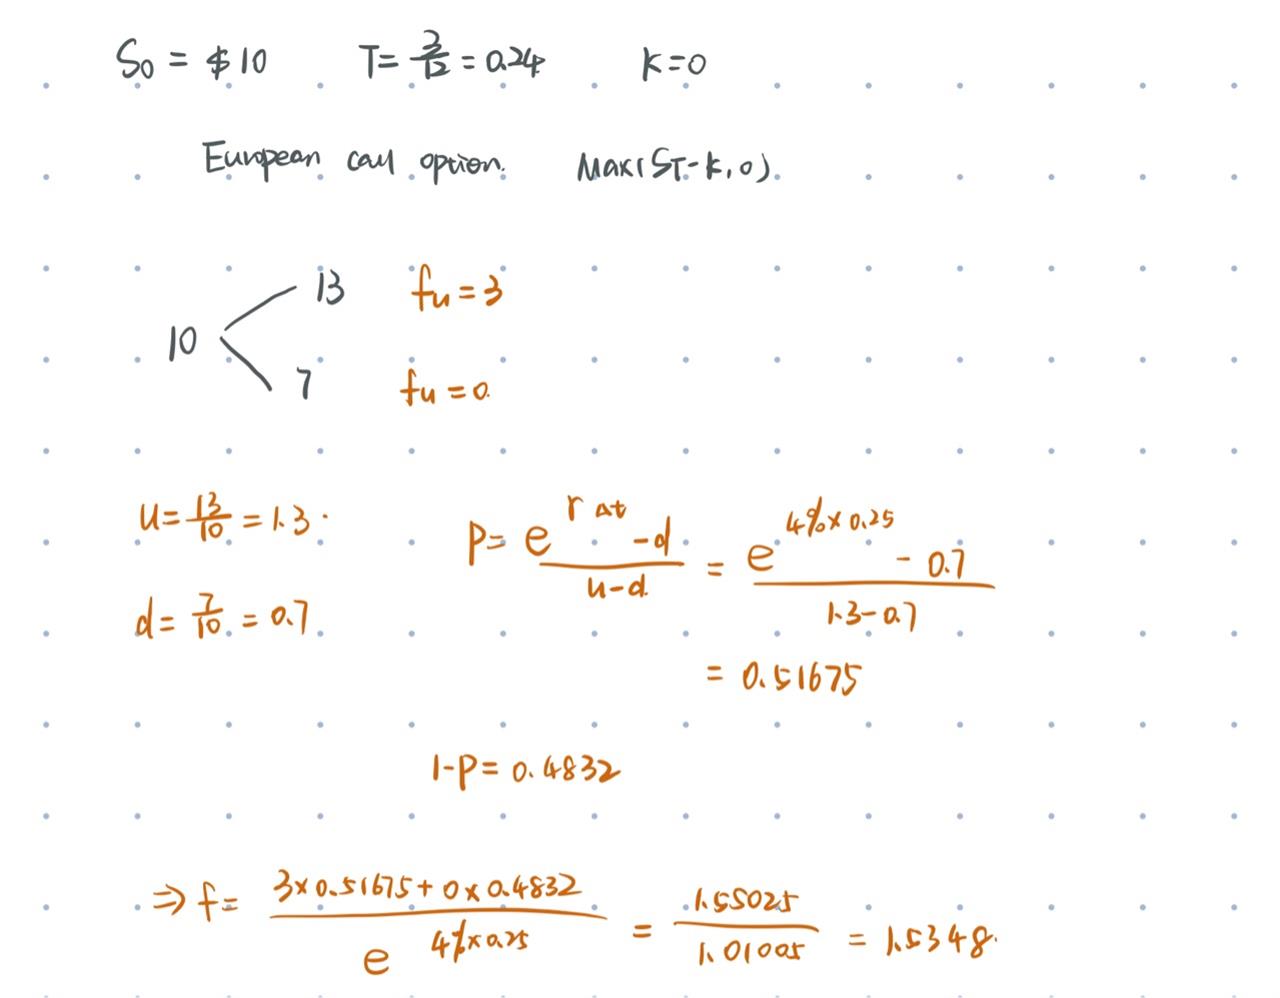 S₀ = $10 T = 3/12 = 0.24 K=0
European call option. Max(S_T-K,0).
13 fu=3
10
7 fu=0.
u=13/10=1.3.
p= (e^(rΔt) -d)/(u-d) = (e^(4%×0.25) - 0.7)/(1.3-0.7)
d= 7/10 = 0.7
= 0.51675
1-p= 0.4832
⇒ f= (3×0.51675+0×0.4832)/(e^(4%×0.25)) = 1.55025/1.01005 = 1.5348.